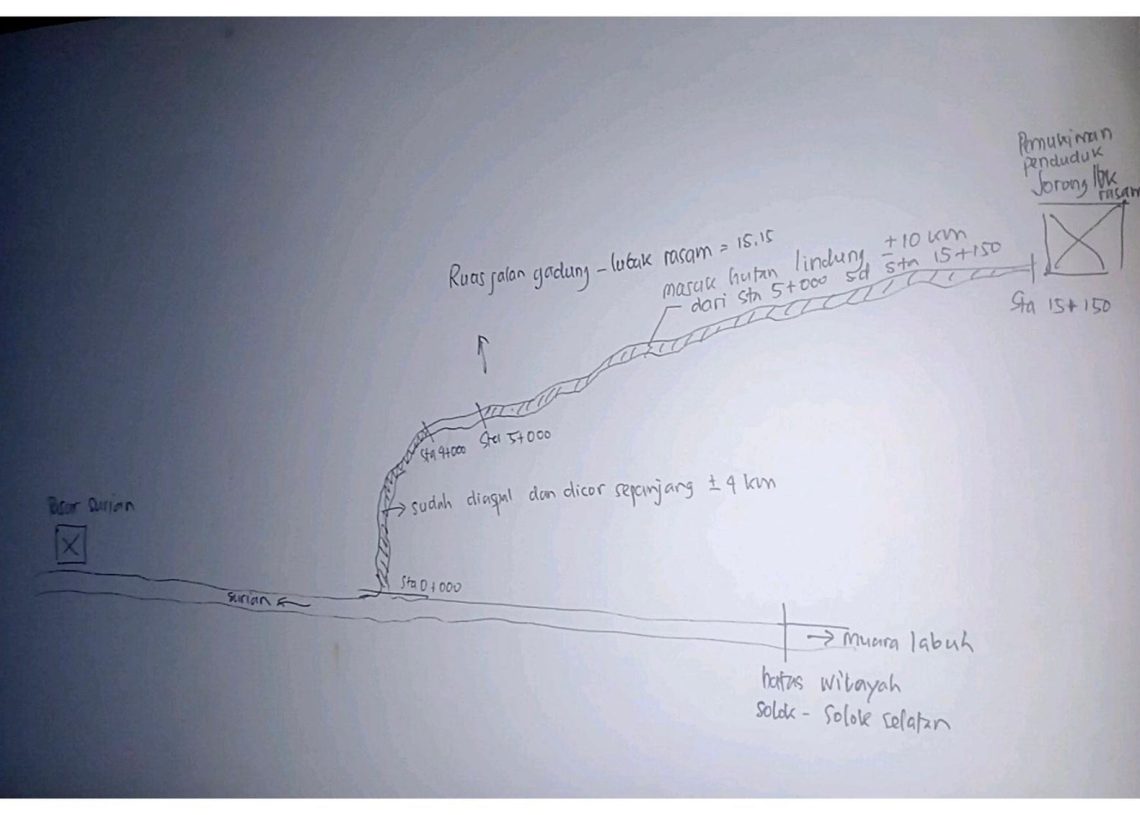 Pemukiman
penduduk
Jorong lbk
rasam
Ruas jalan gadung - lubuk rasam = 15.15
masuk hutan lindung ± 10 km
dari sta 5+000 sd sta 15+150
Sta 15+150
Sta 4+000
Sta 5+000
sudah diaspal dan dicor sepanjang ± 4 km
Pasar Surian
Sta 0+000
Surian
Muara labuh
batas wilayah
Solok - Solok Selatan